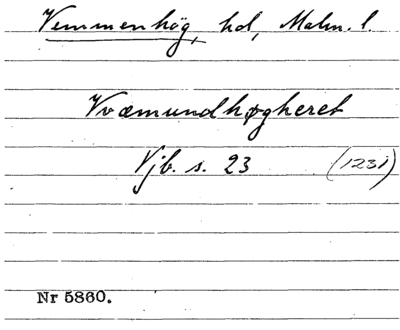 Vemmenhög, hd, Malm. l.
Wæmundhøgheret
Vjb. s. 23 (1231)
Nr 5860.